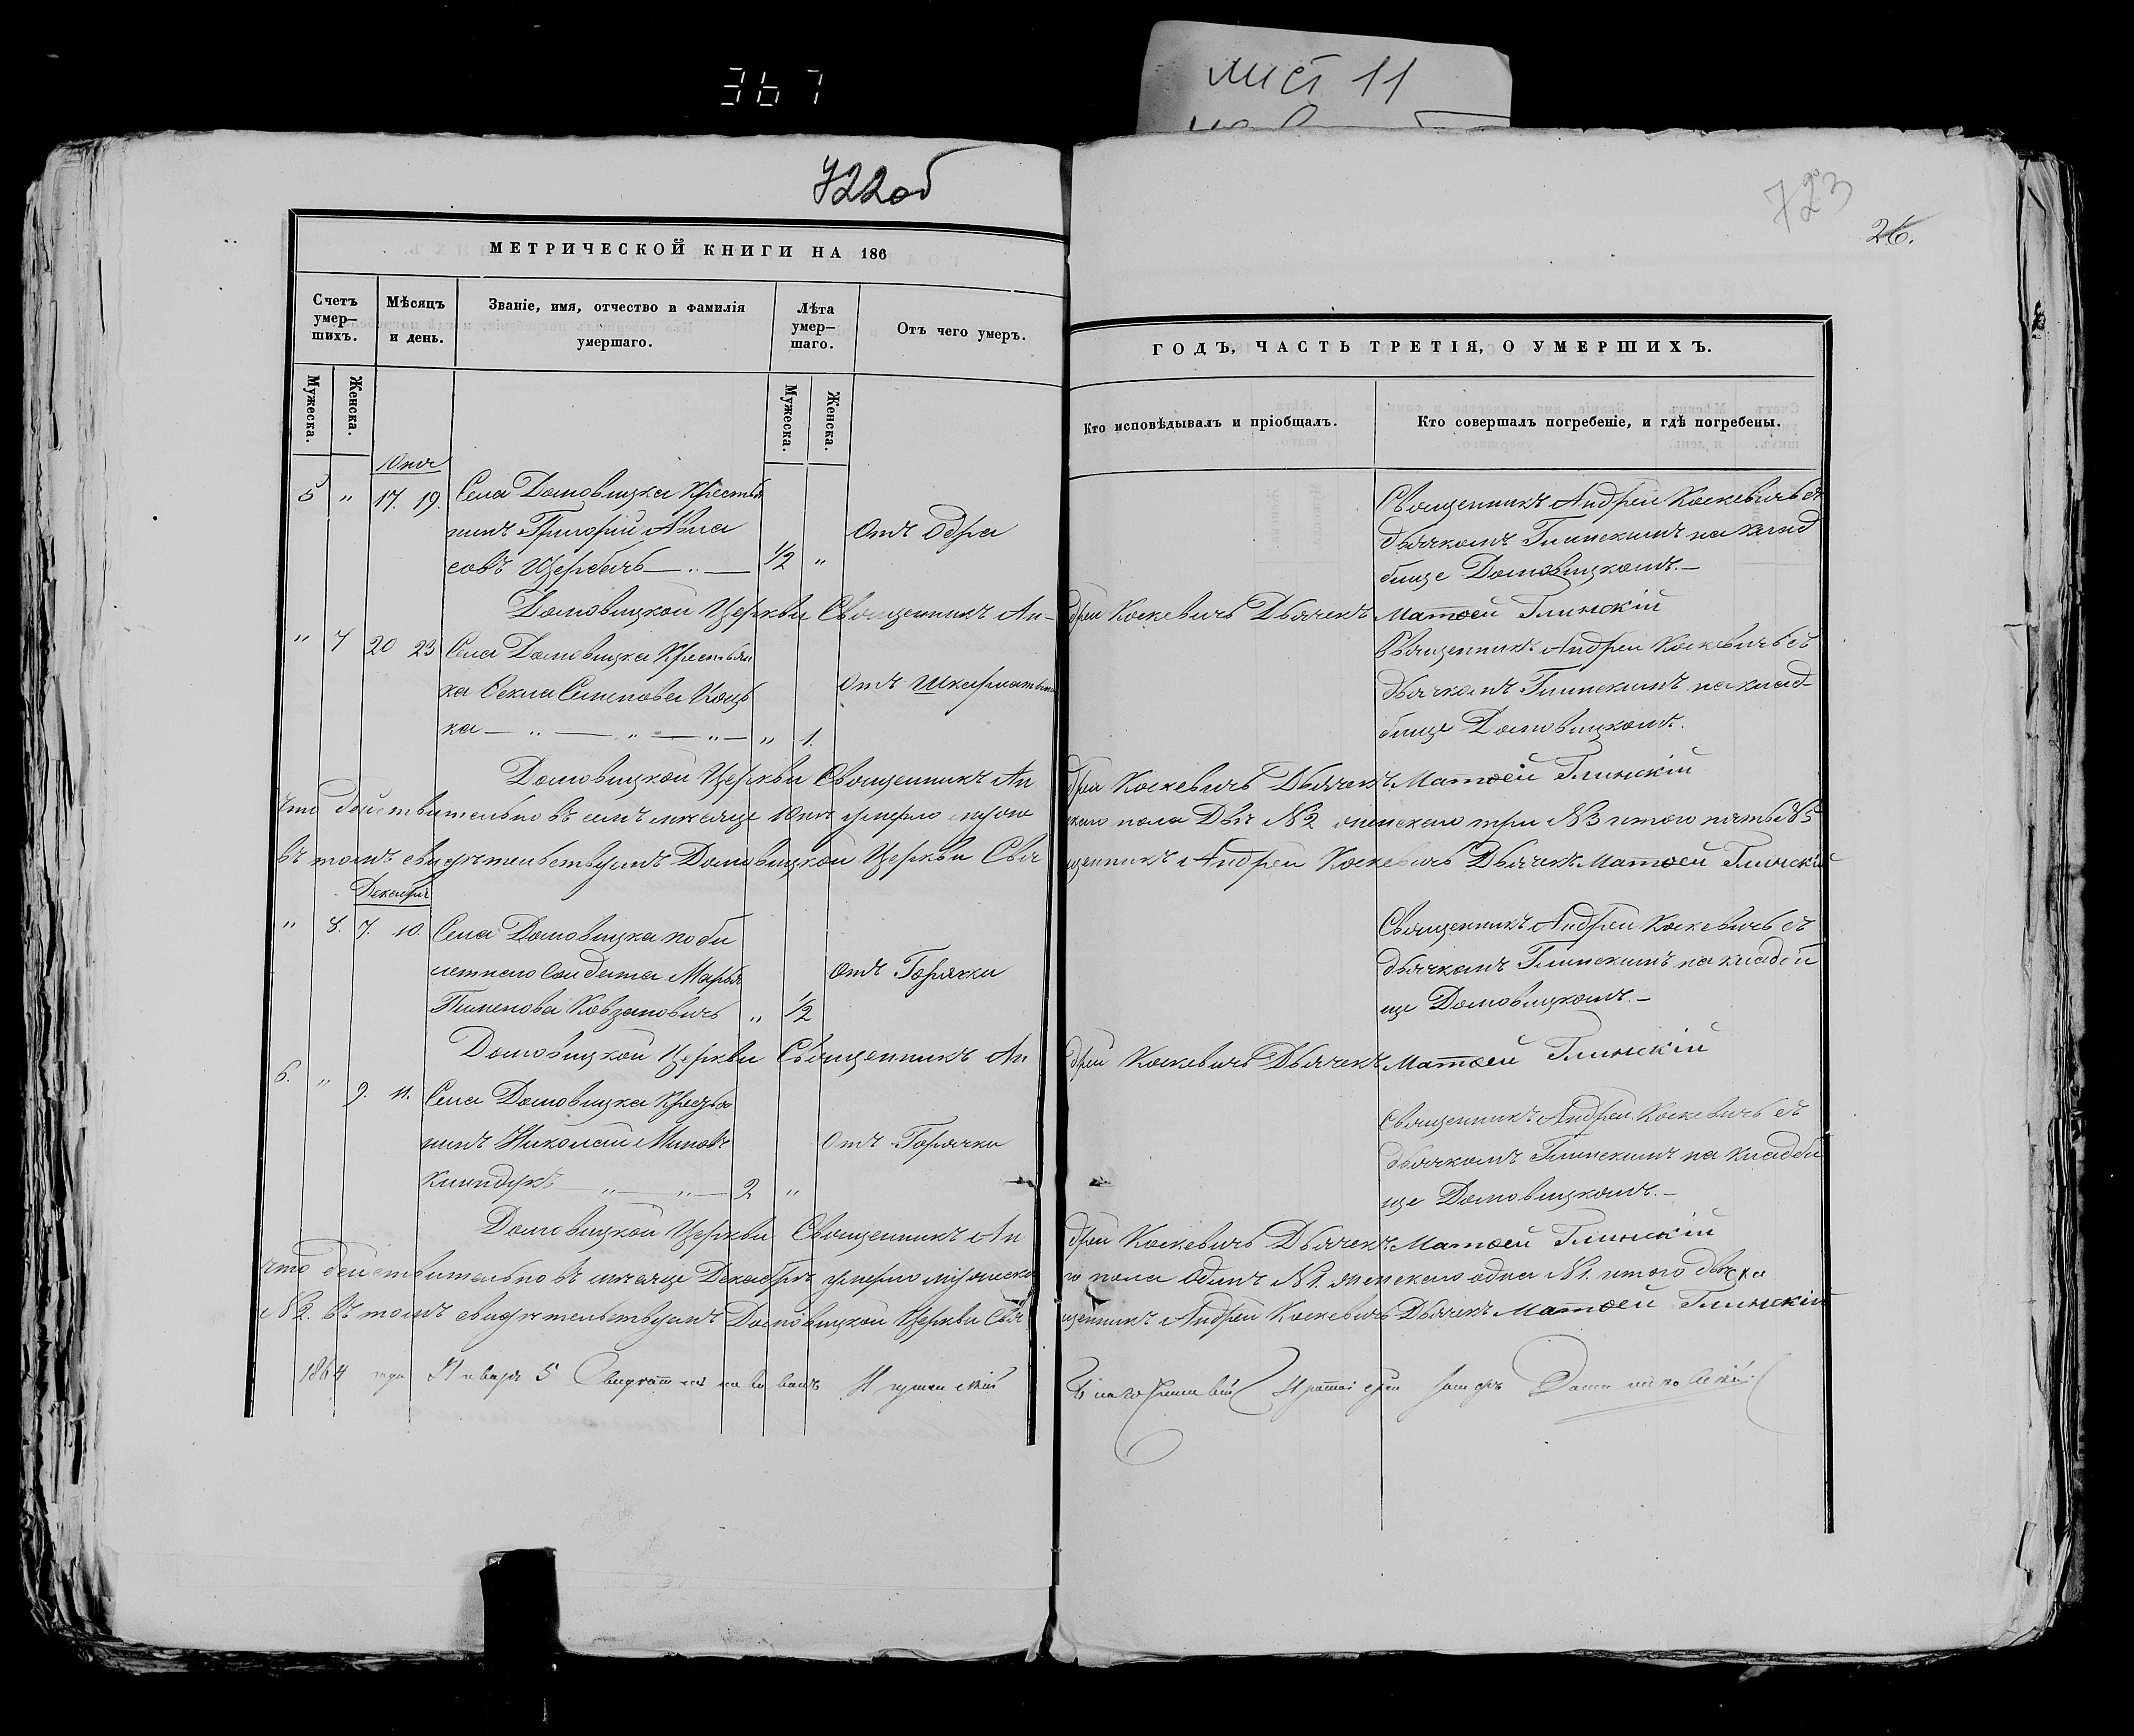 367
лист 11
722об
723
26.
МЕТРИЧЕСКОЙ КНИГИ НА 186
ГОДЪ, ЧАСТЬ ТРЕТІЯ, О УМЕРШИХЪ.
Счетъ умер—шихъ.
Мѣсяцъ и день.
Званіе, имя, отчество и фамилія умершаго.
Лѣта умер—шаго.
Отъ чего умеръ.
Кто исповѣдывалъ и пріобщалъ.
Кто совершалъ погребеніе, и гдѣ погребены.
Мужеска.
Женска.
Мужеска.
Женска.
5 " 17. 19. Села Домовицка Крестья
нинъ Григорій
совъ Щербачъ 1/2 "
Отъ Одра
Священникъ Андрей Коскевичъ съ
дьячкомъ Глинскимъ на клад
бище Домовицкомъ.—
Домовицкой Церкви Священникъ Ан-
дрей Коскевичъ Дьячекъ Матѳей Глинскій
" 7 20 23 Села Домовицка Крестьян
ка Ѳекла Семенова
ка " 1.
Отъ Шкарлатины
Священникъ Андрей Коскевичъ съ
дьячкомъ Глинскимъ на клад-
бище Домовицкомъ.
Домовицкой Церкви Священникъ Ан
дрей Коскевичъ Дьячекъ Матѳей Глинскій
что действительно въ семъ месяце умерло мужс
каго пола Два №2 женскаго три №3 итого пять №5
въ томъ свидѣтельствуемъ Домовицкой Церкви Свя
щенникъ Андрей Коскевичъ Дьячекъ Матѳей Глинскій
Декабрь
" 8. 7. 10. Села Домовицка по би
летнаго Солдата Марья
Пименова Ковзановичъ " 1/2
Отъ Горячки
Священникъ Андрей Коскевичъ съ
дьячкомъ Глинскимъ на кладби
ще Домовицкомъ.—
Домовицкой Церкви Священникъ Ан
дрей Коскевичъ Дьячекъ Матѳей Глинскій
6. " 9. 11. Села Домовицка Крестья
нинъ Николай Миновъ
2 "
Отъ Горячки
Священникъ Андрей Коскевичъ съ
дьячкомъ Глинскимъ на Кладби
ще Домовицкомъ.—
Домовицкой Церкви Священникъ Ан
дрей Коскевичъ Дьячекъ Матѳей Глинскій
что действительно въ месяце Декабрѣ умерло мужеска
го пола Одинъ №1. женскаго одна №1. итого
№2. въ томъ свидѣтельствуемъ Домовицкой Церкви Свя
щенникъ Андрей Коскевичъ Дьячекъ Матѳей Глинскій
1864 года Января 5 Игуменскій
Благочинный